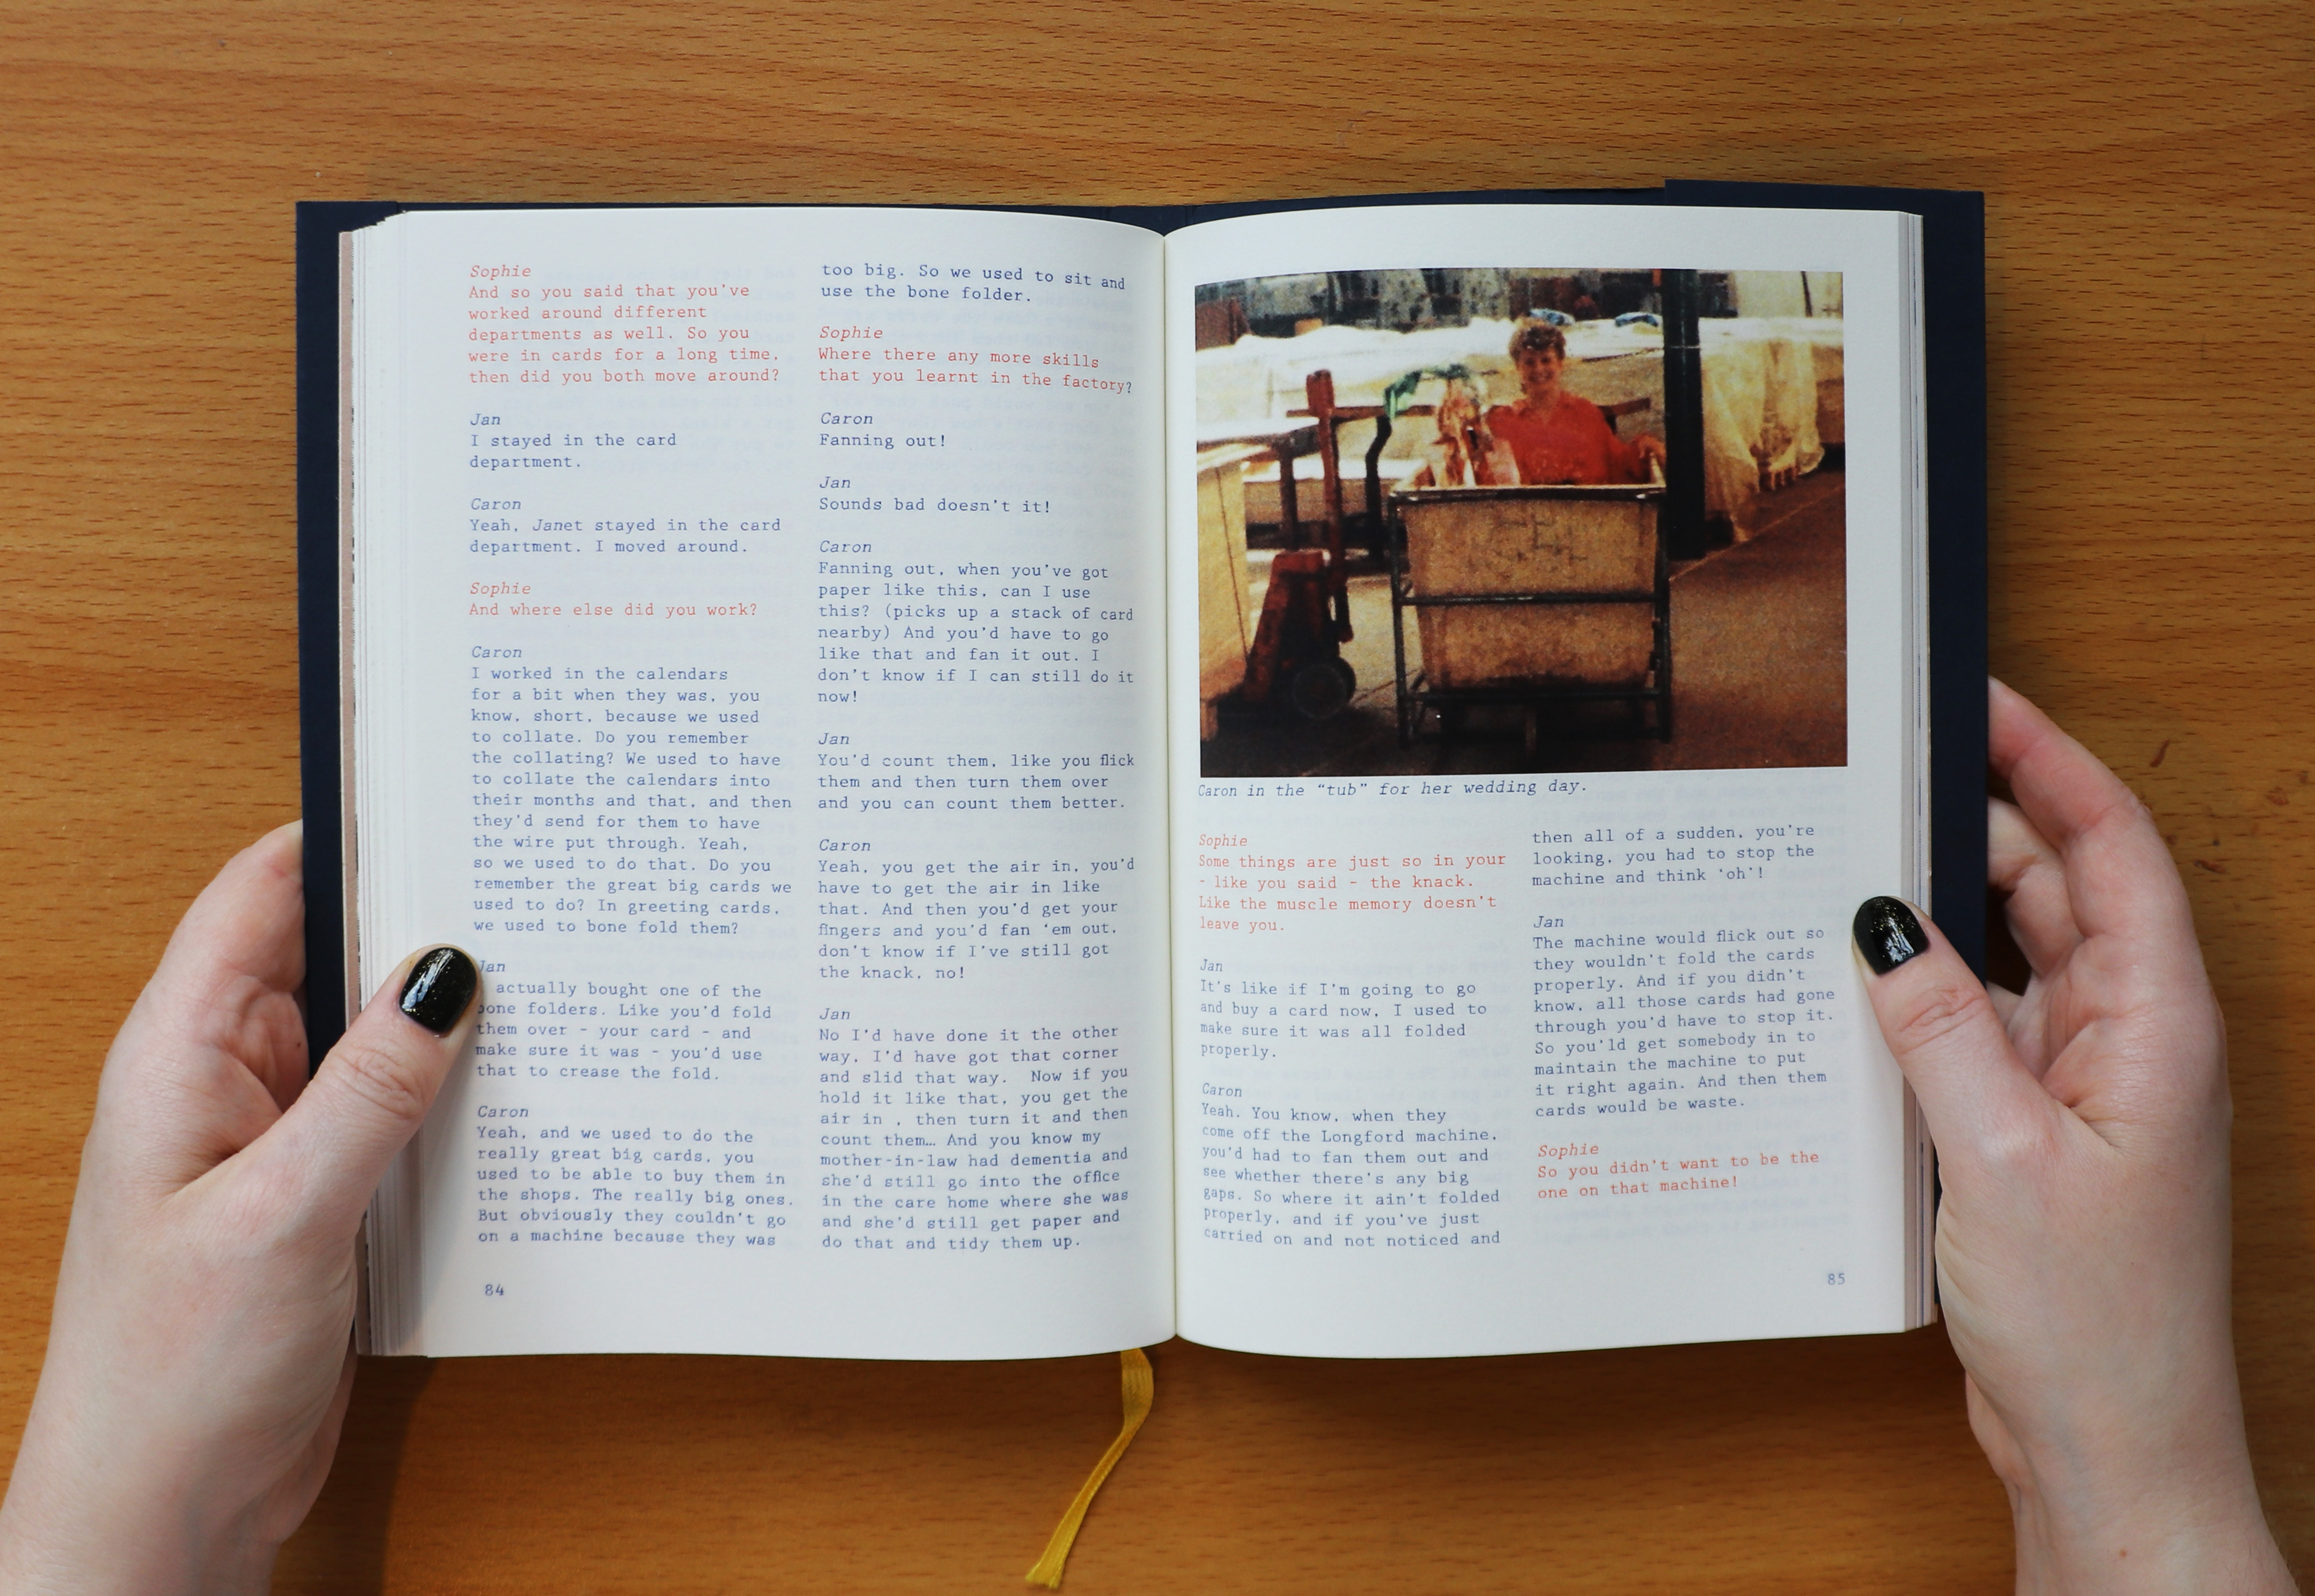 Sophie
And so you said that you've
worked around different
departments as well. So you
were in cards for a long time,
then did you both move around?
Jan
I stayed in the card
department.
Caron
Yeah, Janet stayed in the card
department. I moved around.
Sophie
And where else did you work?
Caron
I worked in the calendars
for a bit when they was, you
know, short, because we used
to collate. Do you remember
the collating? We used to have
to collate the calendars into
their months and that, and then
they'd send for them to have
the wire put through. Yeah,
so we used to do that. Do you
remember the great big cards we
used to do? In greeting cards,
we used to bone fold them?
Jan
actually bought one of the
bone folders. Like you'd fold
them over - your card - and
make sure it was - you'd use
that to crease the fold.
Caron
Yeah, and we used to do the
really great big cards, you
used to be able to buy them in
the shops. The really big ones.
But obviously they couldn't go
on a machine because they was
84
too big. So we used to sit and
use the bone folder.
Sophie
Where there any more skills
that you learnt in the factory?
Caron
Fanning out!
Jan
Sounds bad doesn't it!
Caron
Fanning out, when you've got
paper like this, can I use
this? (picks up a stack of card
nearby) And you'd have to go
like that and fan it out. I
don't know if I can still do it
now!
Jan
You'd count them, like you flick
them and then turn them over
and you can count them better.
Caron
Yeah, you get the air in, you'd
have to get the air in like
that. And then you'd get your
fingers and you'd fan 'em out,
don't know if I've still got
the knack, no!
Jan
No I'd have done it the other
way, I'd have got that corner
and slid that way.  Now if you
hold it like that, you get the
air in , then turn it and then
count them… And you know my
mother-in-law had dementia and
she'd still go into the office
in the care home where she was
and she'd still get paper and
do that and tidy them up.
Caron in the “tub” for her wedding day.
Sophie
Some things are just so in your
- like you said - the knack.
Like the muscle memory doesn't
leave you.
Jan
It's like if I'm going to go
and buy a card now, I used to
make sure it was all folded
properly.
Caron
Yeah. You know, when they
come off the Longford machine,
you'd had to fan them out and
see whether there's any big
gaps. So where it ain't folded
properly, and if you've just
carried on and not noticed and
then all of a sudden, you're
looking, you had to stop the
machine and think 'oh'!
Jan
The machine would flick out so
they wouldn't fold the cards
properly. And if you didn't
know, all those cards had gone
through you'd have to stop it.
So you'ld get somebody in to
maintain the machine to put
it right again. And then them
cards would be waste.
Sophie
So you didn't want to be the
one on that machine!
85